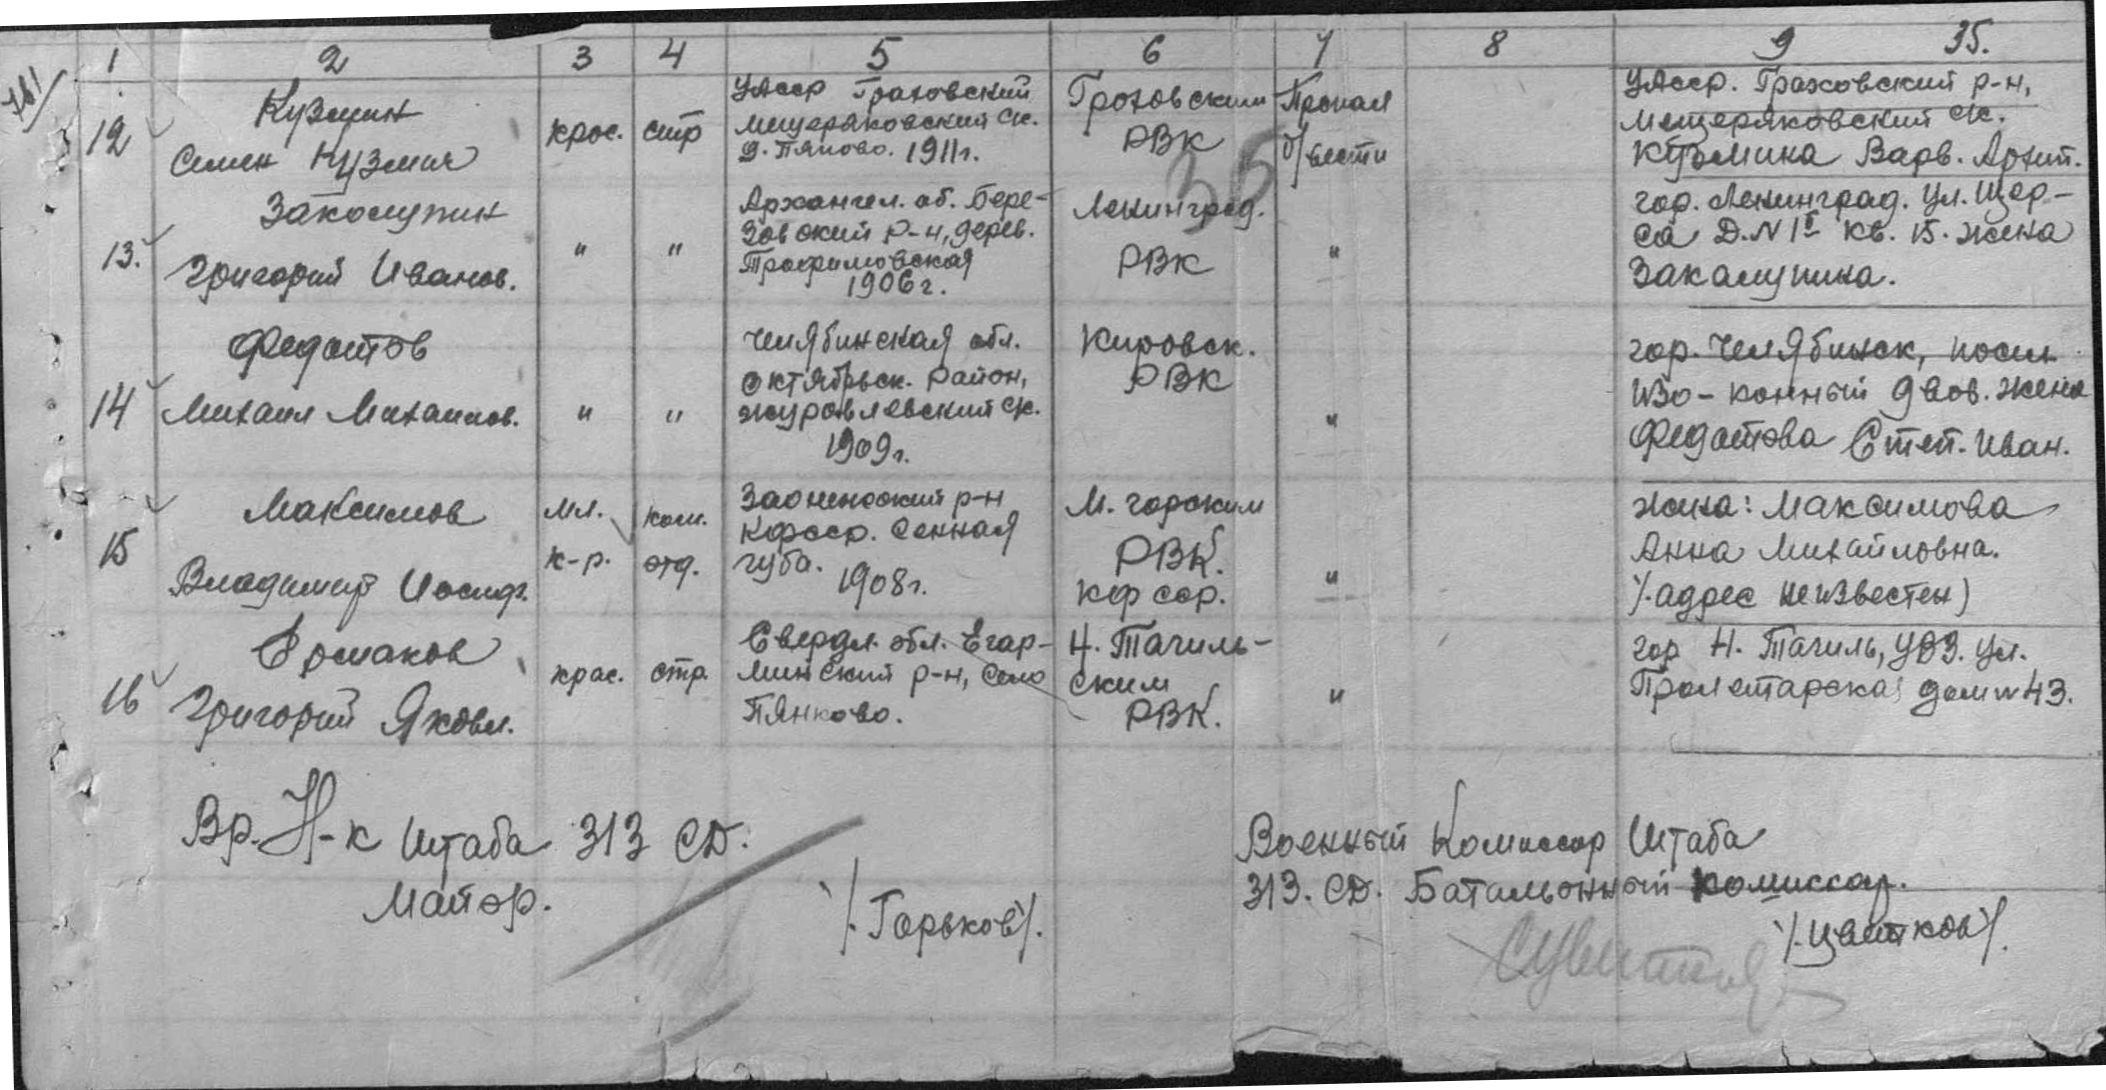 1 2 3 4 5 6 7 8 9 35.
12
Кузмин
Семен Кузмич
крас.
стр
УАССР Граховский
Мещеряковский с/с.
д. Пяново. 1911г.
Гроховским
РВК
Пропал
б/вести
УАССР. Граховский р-н,
Мещеряковский с/с.
Кузьмина Варв. Архип.
35
13.
Заколупин
Григорий Иванов.
"
"
Архангел. об. Бере-
зовский р-н, дерев.
Трофимовская
1906г.
Ленинград.
РВК
"
гор. Ленинград. ул. Щер-
са Д.N 1 кв. 15. жена
Закалупина.
14
Федотов
Михаил Михаилов.
"
"
Челябинская обл.
Октябрьск. район,
Журовлевский с/с.
1909г.
Кировск.
РВК
"
гор. Челябинск, посел
Изо-конный двов. жена
Федотова Степ. Иван.
15
Максимов
Владимир Иосиф.
мл.
к-р.
ком.
отд.
Заонежский р-н
Кфсср. Сенная
губа. 1908г.
М. горским
РВК.
кфсср.
"
жена: Максимова
Анна Михайловна.
/.адрес неизвестен)
16
Ермаков
Григорий Яковл.
крас.
стр.
Свердл. обл. Егар-
минский р-н, село
Пянково.
Н. Тагиль-
ским
РВК.
"
гор Н. Тагиль, УВЗ. ул.
Пролетарская дом N 43.
Вр. Н-к Штаба 313 СД.
Майор.
/.Горьков/.
Военный Комиссар Штаба
313. СД. Батальонный комиссар.
/.Цветков/.